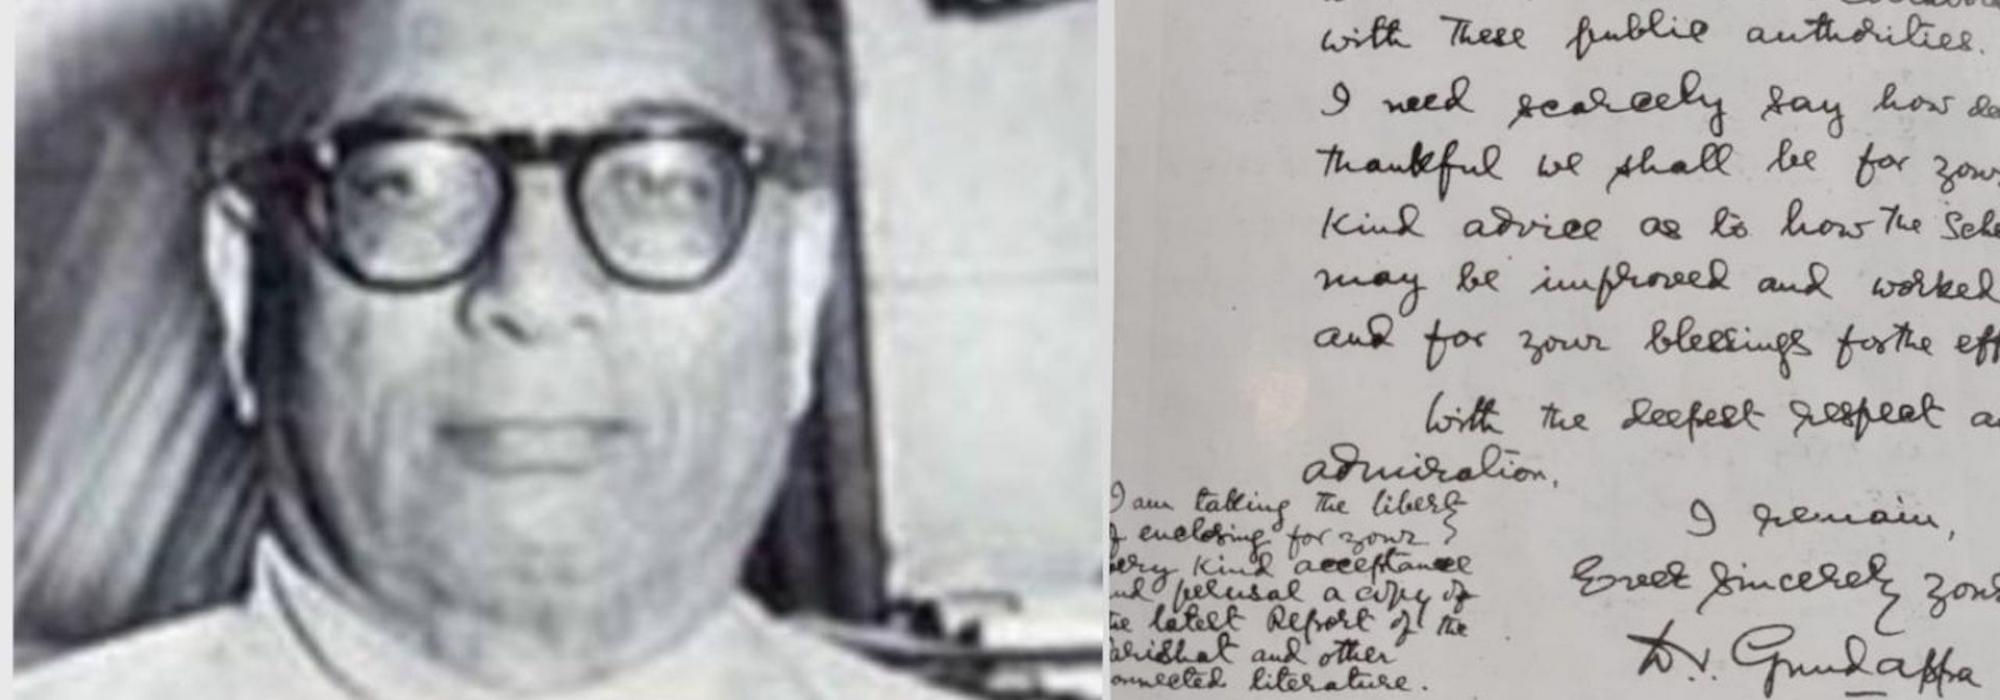 with these public authorities.
I need scarcely say how
thankful we shall be for your
kind advice as to how the Sche
may be improved and worked
and for your blessings for the eff
With the deepest respect a
admiration,
I remain,
Ever sincerely yours
D.V. Gundappa
I am taking the liberty
of enclosing for your
very kind acceptance
and perusal a copy of
the latest Report of the
arishat and other
connected literature.